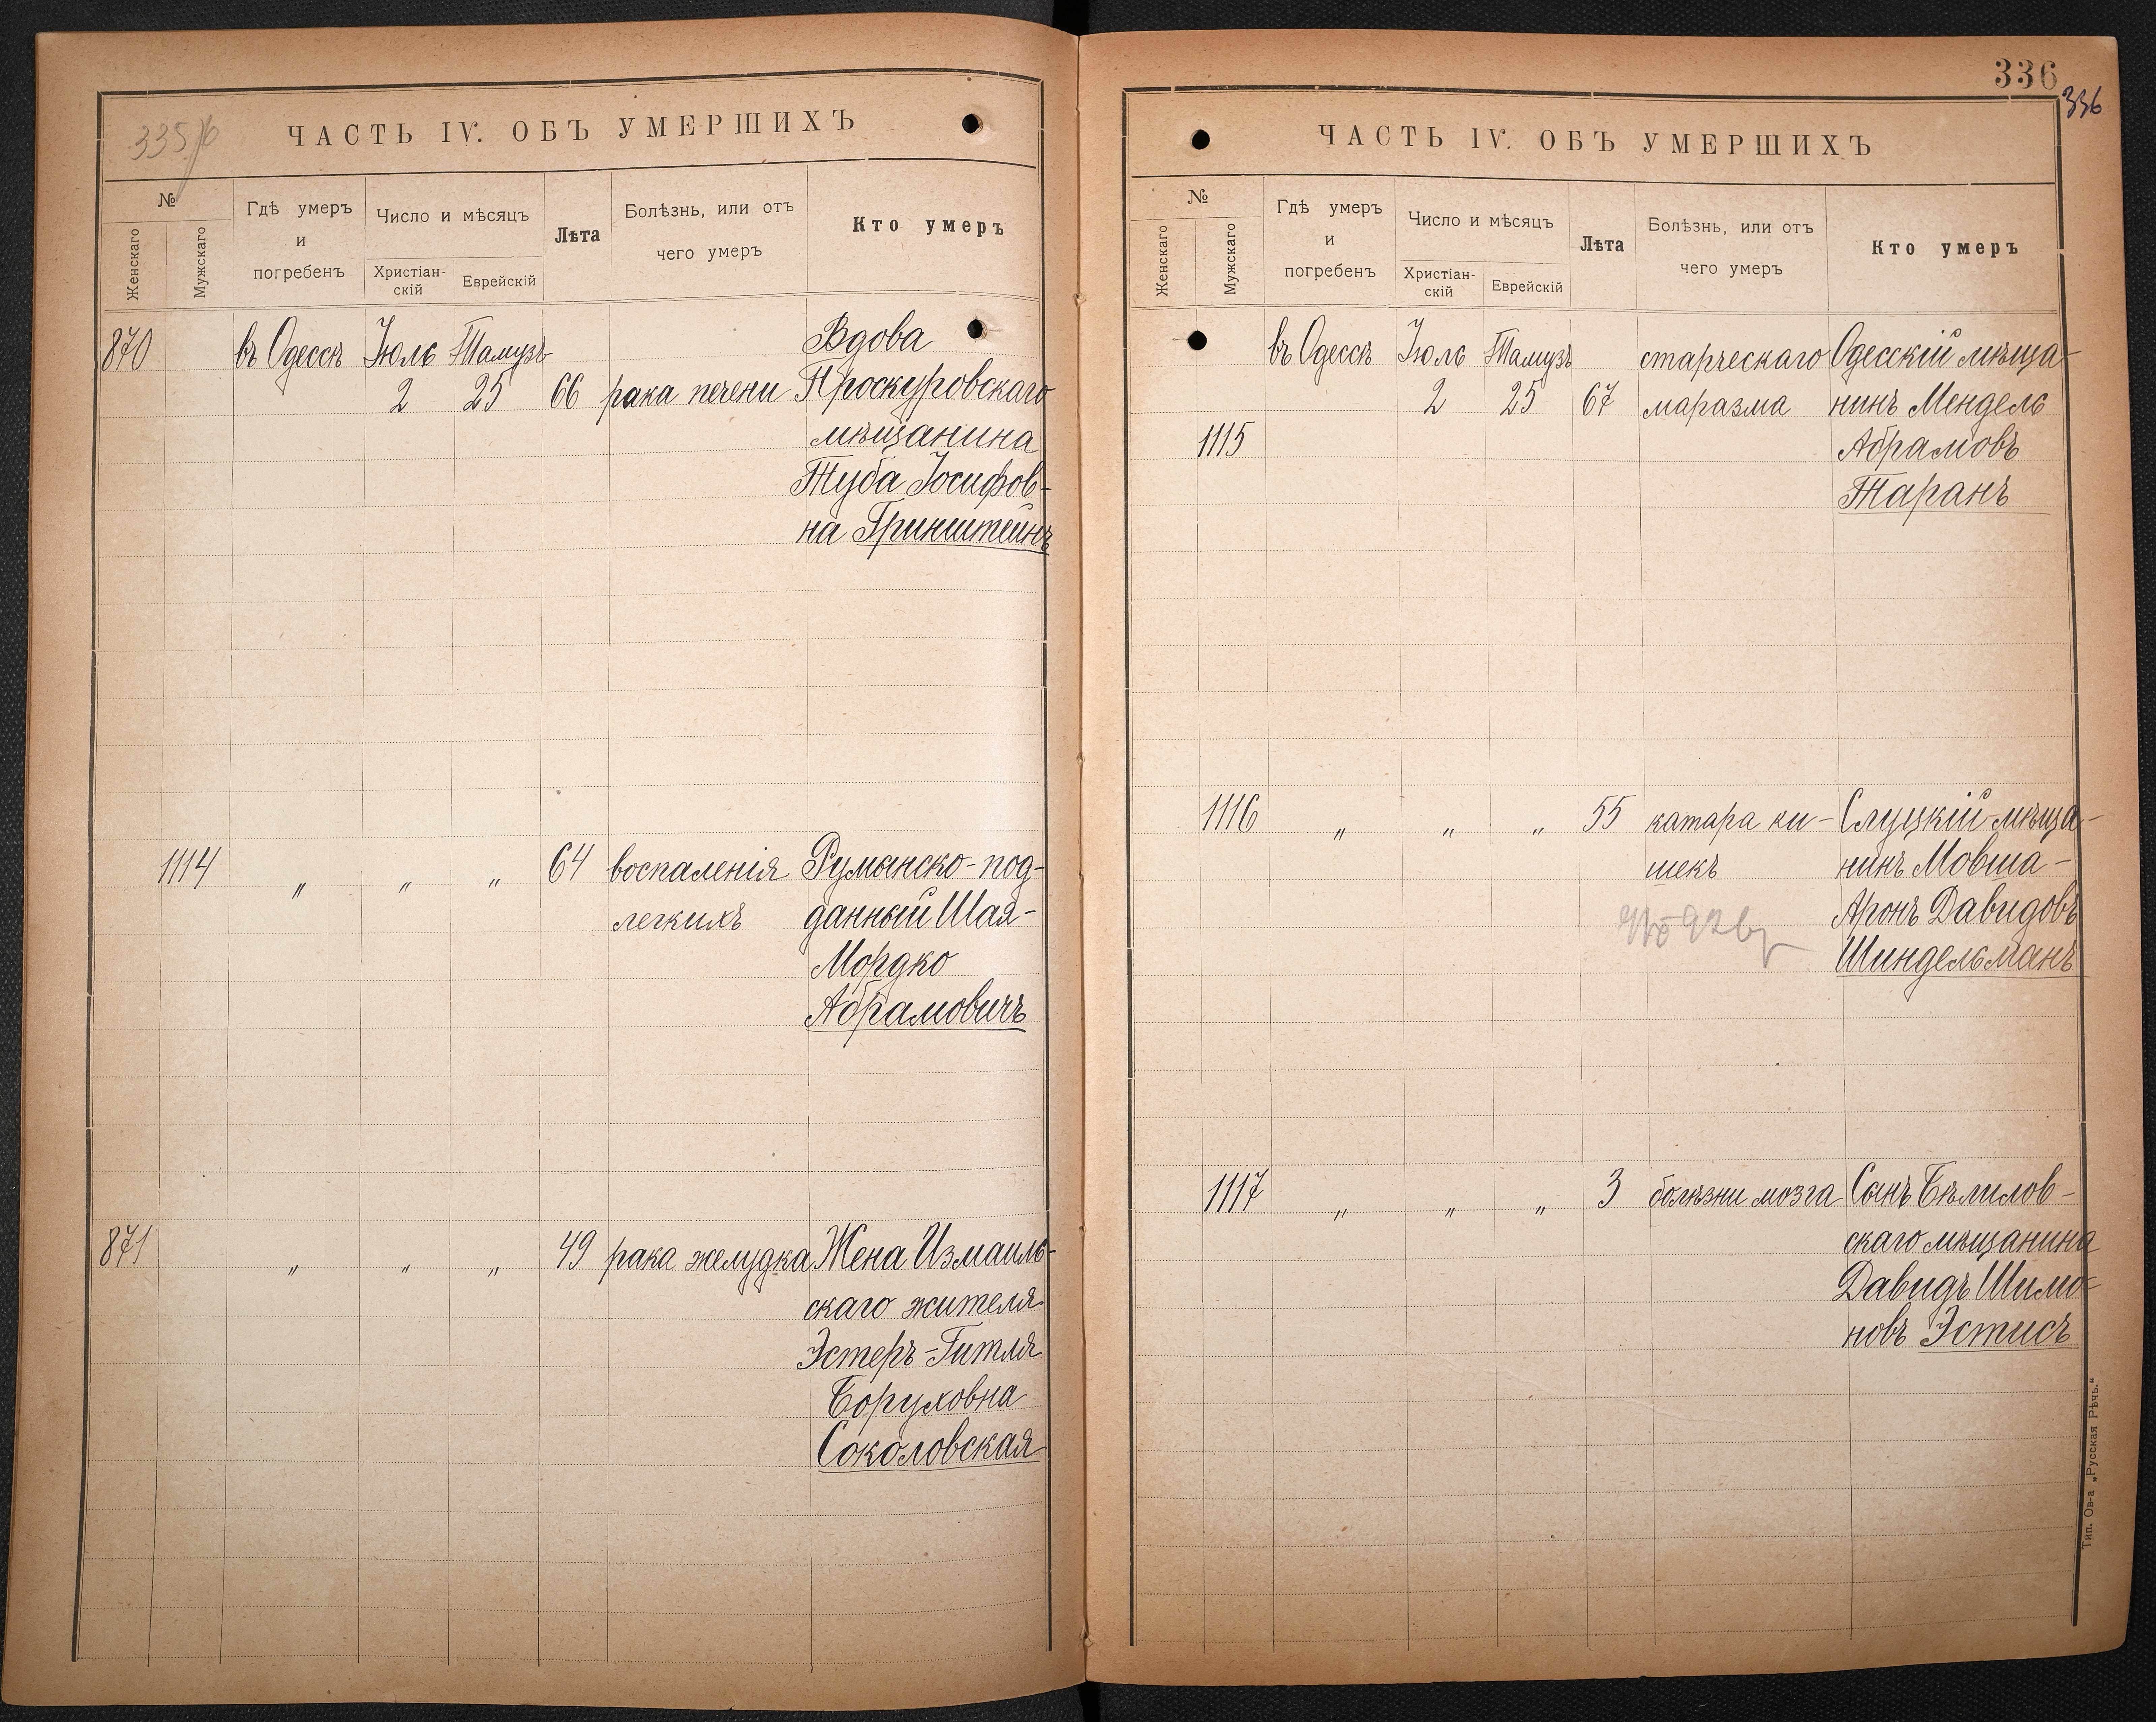 335
ЧАСТЬ IV. ОБЪ УМЕРШИХЪ
№
Женскаго
Мужскаго
Гдѣ умеръ
и
погребенъ
Число и мѣсяцъ
Христіан-
скій
Еврейскій
Лѣта
Болѣзнь, или отъ
чего умеръ
Кто умеръ
870 въ Одессѣ Іюль Тамузъ Вдова
2 25 66 рака печени Проскуровскаго
мѣщанина
Туба Іосифов-
на Гринштейнъ
1114 " " " 64 воспаленія Румынско-под-
легкихъ данный Шая-
Мордко
Абрамовичъ
871 " " " 49 рака желудка Жена Измаиль-
скаго жителя
Эстеръ-Гитля
Боруховна
Соколовская
336
336
ЧАСТЬ IV. ОБЪ УМЕРШИХЪ
№
Женскаго
Мужскаго
Гдѣ умеръ
и
погребенъ
Число и мѣсяцъ
Христіан-
скій
Еврейскій
Лѣта
Болѣзнь, или отъ
чего умеръ
Кто умеръ
въ Одессѣ Іюль Тамузъ старческаго Одесскій мѣща-
2 25 67 маразма нинъ Мендель
1115 Абрамовъ
Таранъ
1116 " " " 55 катара ки- Слуцкій мѣща-
шекъ нинъ Мовша-
Аронъ Давидовъ
Шиндельманъ
1117 " " " 3 болѣзни мозга Сынъ Бѣлилов-
скаго мѣщанина
Давидъ Шимо-
новъ Эстисъ
Тип. Ов-а „Русская Рѣчь."